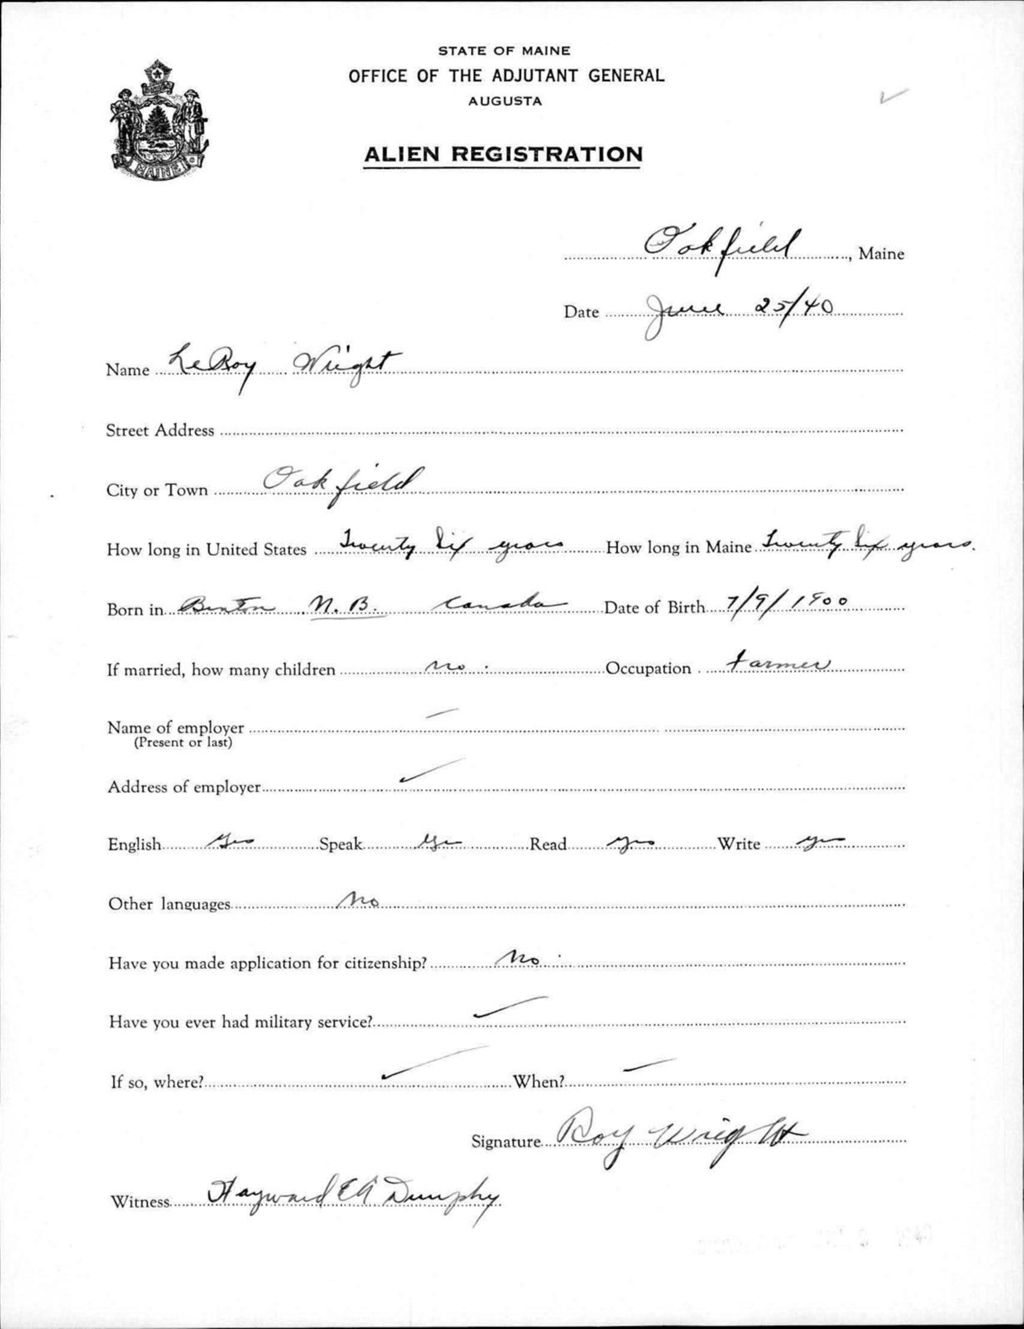 STATE OF MAINE
OFFICE OF THE ADJUTANT GENERAL
AUGUSTA
ALIEN REGISTRATION
Oakfield, Maine
Date June 25/40
Name LeRoy Wright
Street Address
City or Town Oakfield
How long in United States Twenty Six years How long in Maine Twenty Six years.
Born in Benton N.B. Canada Date of Birth 7/9/1900
If married, how many children no Occupation Farmer
Name of employer
(Present or last)
Address of employer
English Yes Speak Yes Read Yes Write Yes
Other languages No
Have you made application for citizenship? No
Have you ever had military service?
If so, where? When?
Signature Roy Wright
Witness Hayward EA Dunphy
MAINE